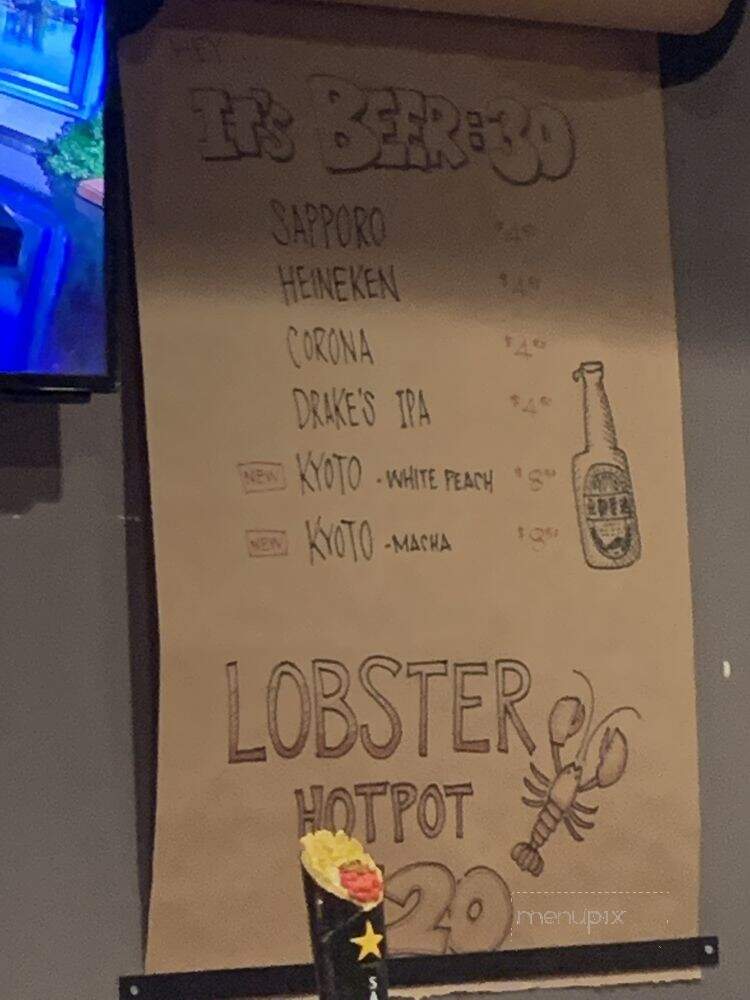 HEY...
IT'S BEER:30
SAPPORO
HEINEKEN
CORONA
DRAKE'S IPA
NEW KYOTO - WHITE PEACH
NEW KYOTO - MACHA
LOBSTER
HOTPOT
20
menupix